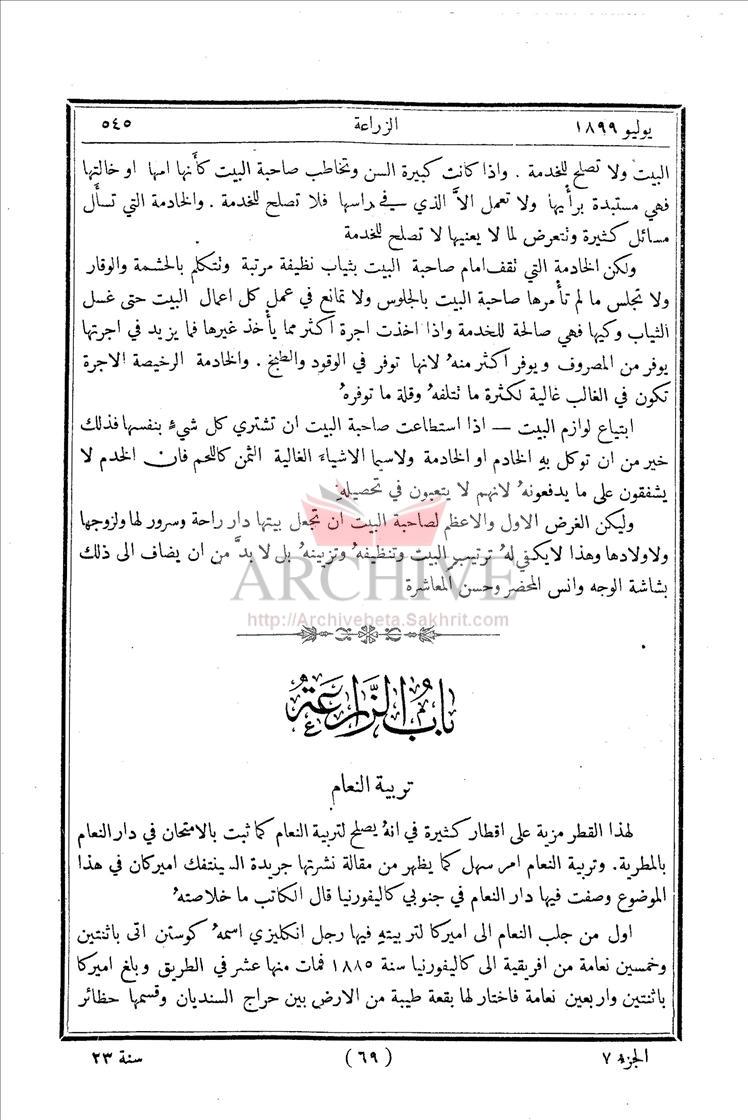 يوليو ١٨٩٩ الزراعة ٥٤٥
البيت ولا تصلح للخدمة . واذا كانت كبيرة السن وتخاطب صاحبة البيت كأَنها امها او خالتها
فهي مستبدة برأْيها ولا تعمل الاَّ الذي في راسها فلا تصلح للخدمة . والخادمة التي تسأَل
مسائل كثيرة وتتعرض لما لا يعنيها لا تصلح للخدمة
ولكن الخادمة التي تقف امام صاحبة البيت بثياب نظيفة مرتبة وتتكلم بالحشمة والوقار
ولا تجلس ما لم تأْمرها صاحبة البيت بالجلوس ولا تمانع في عمل كل اعمال البيت حتى غسل
الثياب وكيها فهي صالحة للخدمة واذا اخذت اجرة اكثر مما يأْخذ غيرها فما يزيد في اجرتها
يوفر من المصروف ويوفر اكثر منهُ لانها توفر في الوقود والطبخ . والخادمة الرخيصة الاجرة
تكون في الغالب غالية لكثرة ما تتلفهُ وقلة ما توفرهُ
ابتياع لوازم البيت — اذا استطاعت صاحبة البيت ان تشتري كل شيءٍ بنفسها فذلك
خير من ان توكل بهِ الخادم او الخادمة ولاسيما الاشياءَ الغالية الثمن كاللحم فان الخدم لا
يشفقون على ما يدفعونهُ لانهم لا يتعبون في تحصيلهِ
وليكن الغرض الاول والاعظم لصاحبة البيت ان تجعل بيتها دار راحة وسرور لها ولزوجها
ولاولادها وهذا لا يكفي لهُ ترتيب البيت وتنظيفهُ وتزيينهُ بل لا بدَّ من ان يضاف الى ذلك
بشاشة الوجه وانس المحضر وحسن المعاشرة
ARCHIVE
http://Archivebeta.Sakhrit.com
بَابُ الزِّرَاعَةِ
تربية النعام
لهذا القطر مزية على اقطار كثيرة في انهُ يصلح لتربية النعام كما ثبت بالامتحان في دار النعام
بالمطرية. وتربية النعام امر سهل كما يظهر من مقالة نشرتها جريدة السينتفك اميركان في هذا
الموضوع وصفت فيها دار النعام في جنوبي كاليفورنيا قال الكاتب ما خلاصتهُ
اول من جلب النعام الى اميركا لتربيتهِ فيها رجل انكليزي اسمهُ كوستن اتى باثنتين
وخمسين نعامة من افريقية الى كاليفورنيا سنة ١٨٨٥ فمات منها عشر في الطريق وبلغ اميركا
باثنتين واربعين نعامة فاختار لها بقعة طيبة من الارض بين حراج السنديان وقسمها حظائر
الجزء ٧ (٦٩) سنة ٢٣